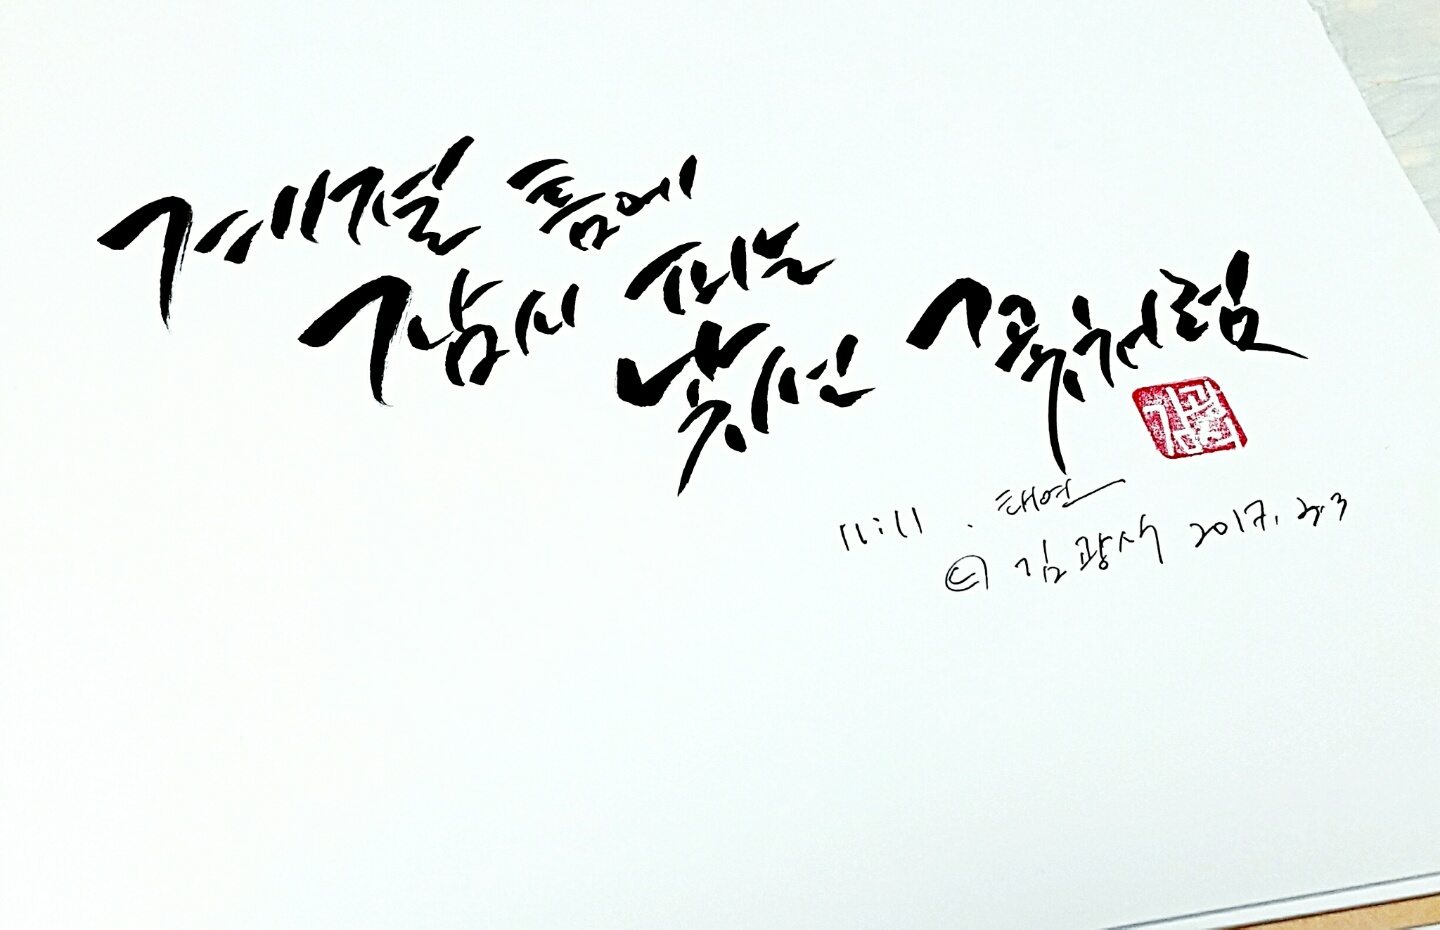 계절 틈에
잠시 피는
낯선 꽃처럼
11:11 . 태연
ⓒ 김광석 2017. 2. 3